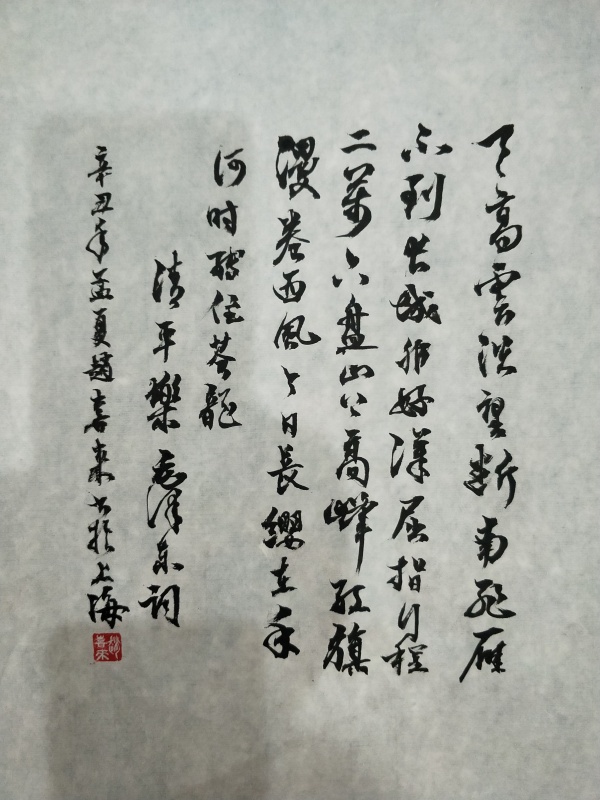 天高雲淡望斷南飛雁
不到长城非好漢屈指行程
二萬六盤山上高峰紅旗
漫卷西風今日長纓在手
何时縛住蒼龍
清平樂毛澤东詞
辛丑年孟夏趙喜来书於上海